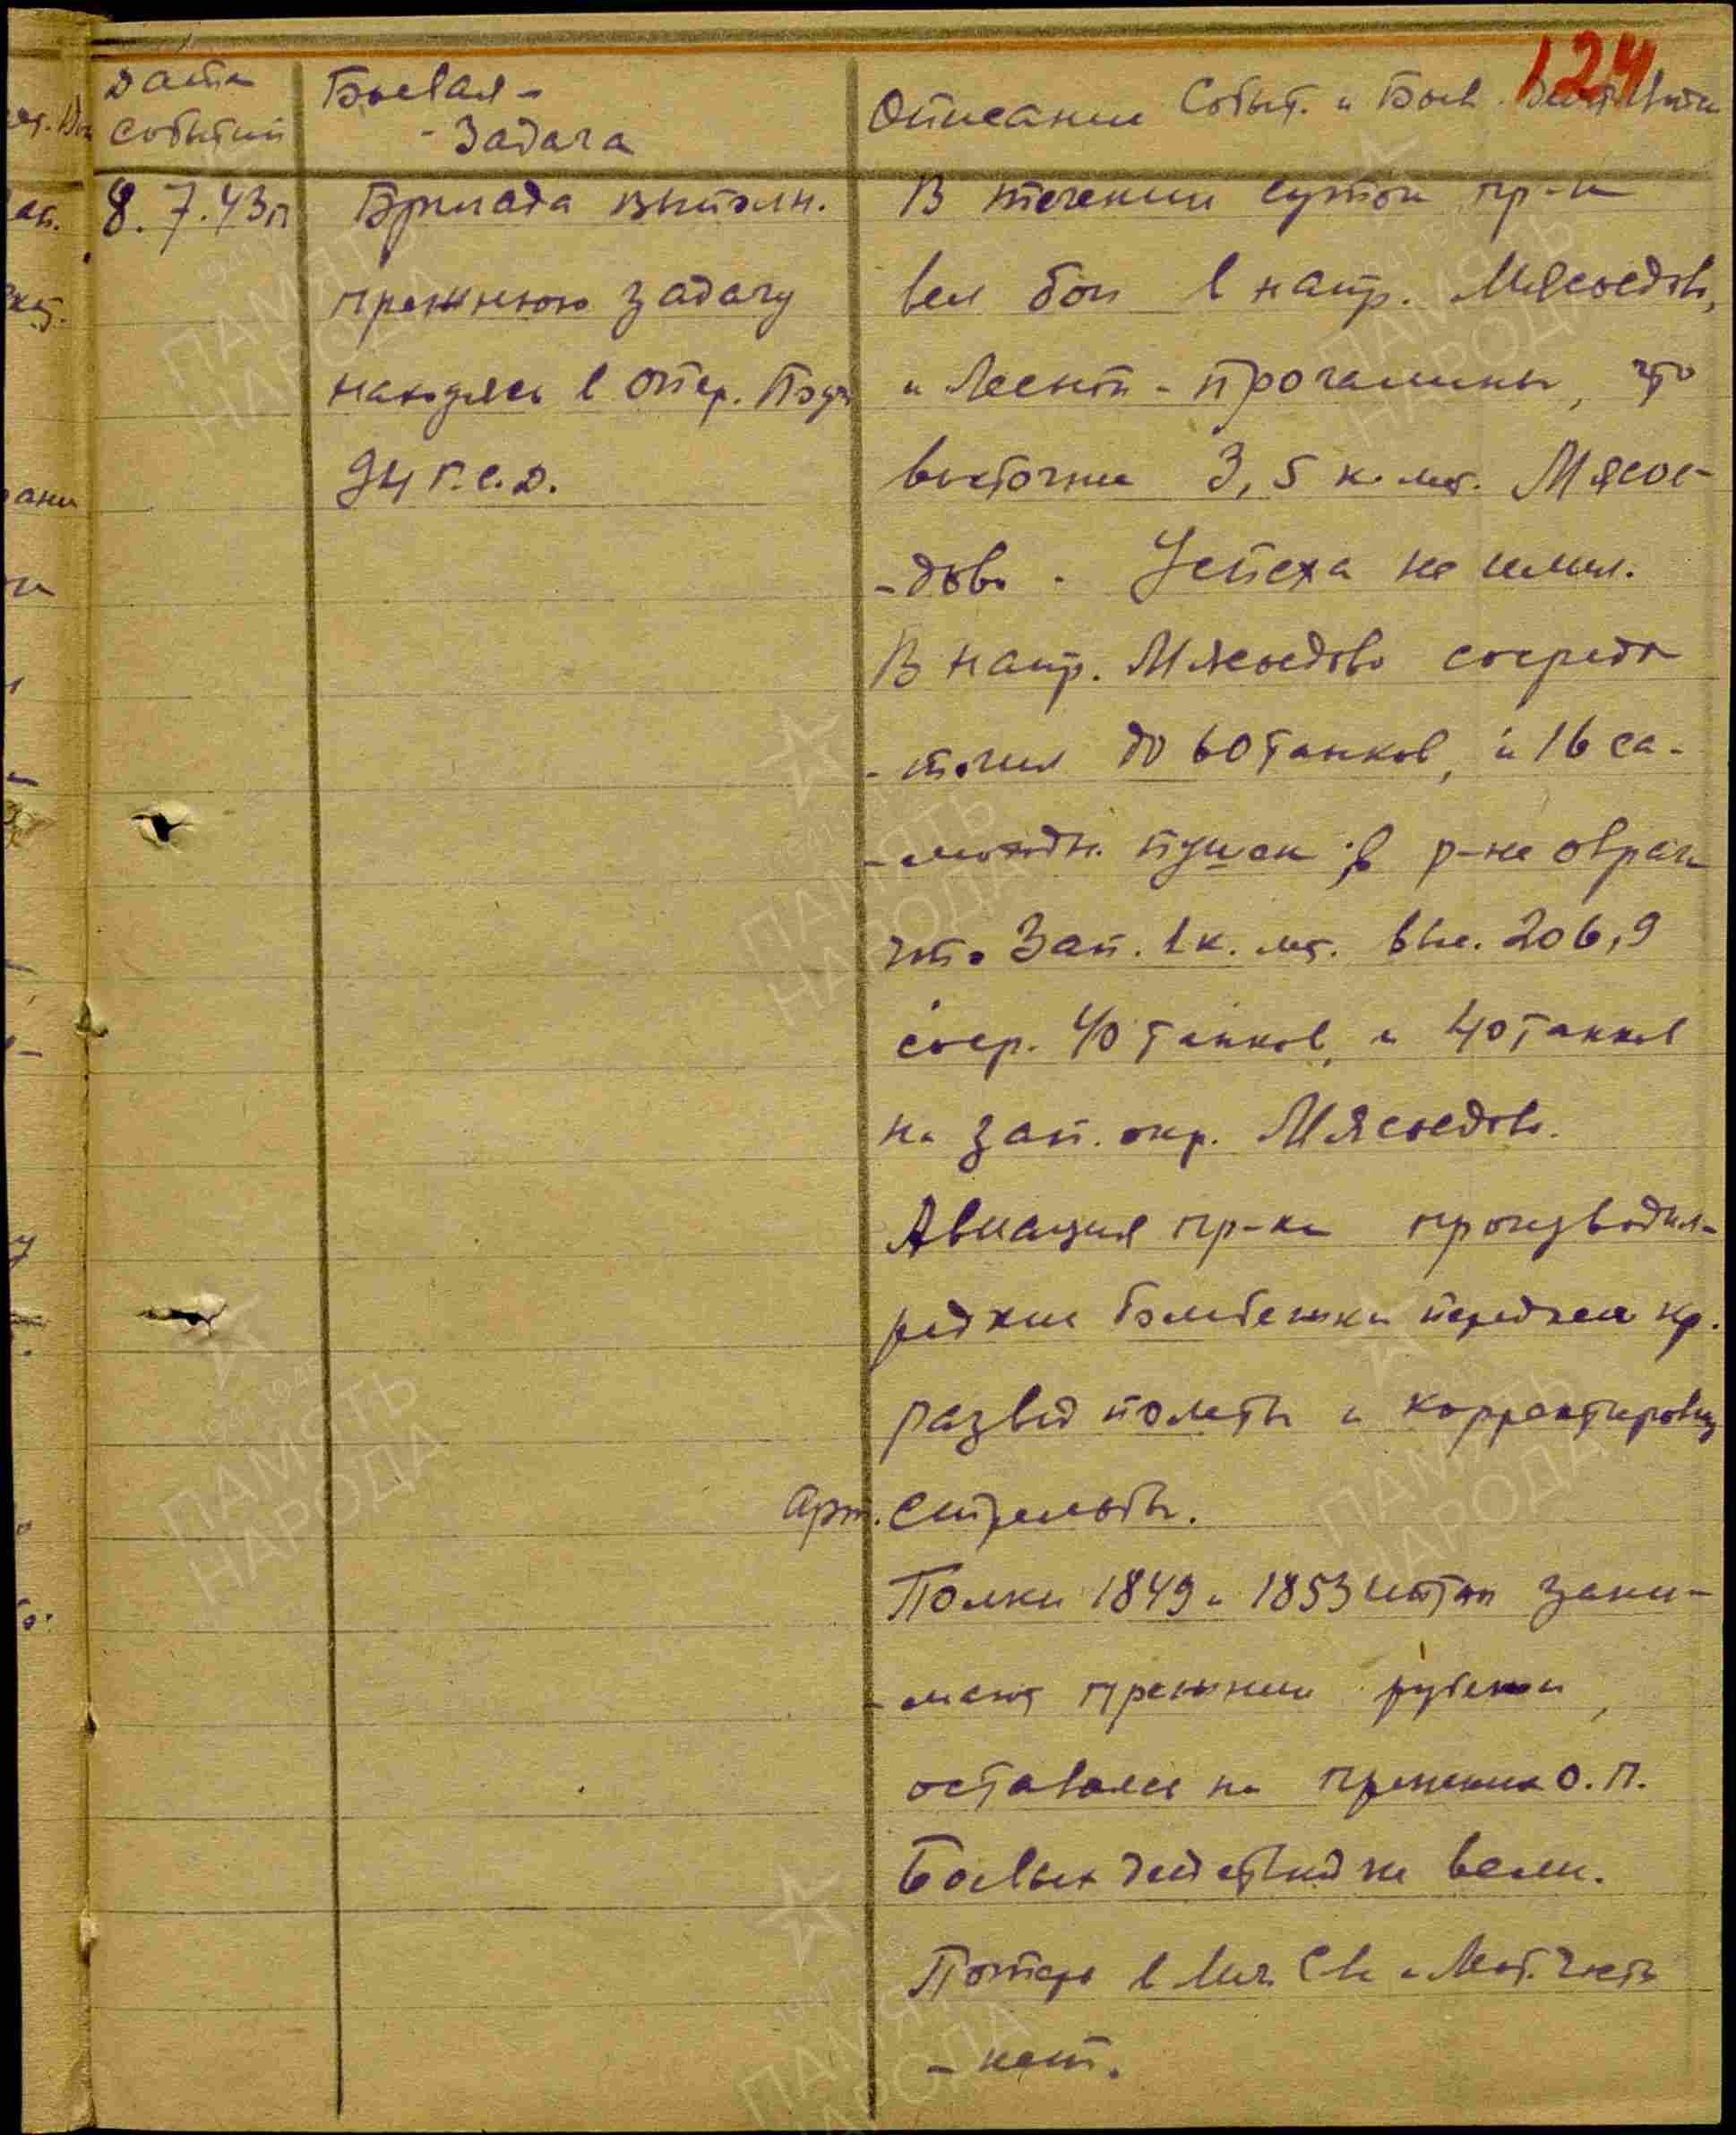 124
Дата
событий
Боевая -
- Задача
Описание Событ. и Боев.
8. 7. 43г
Бригада выполн.
прежнюю задачу
находясь в опер. Под
94 Г.С.Д.
В течении суток пр-к
вел бои в напр. Мясоедово,
и Лесн - прогалины, что
восточнее 3,5 к. мт. Мясое-
- дово. Успеха не имел.
В напр. Мясоедово сосредо
- точил до 60 танков, и 16 са-
- моходн. пушек в р-не оврага
что Зап. 1 к. мт. выс. 206,9
соср. 40 танков, и 40 танков
на зап. окр. Мясоедово.
Авиация пр-ка производил-
редкие бомбежки переднего кр.
развед полеты и корректировку
Арт. стрельбы.
Полки 1849 и 1853 иптап зани-
- мают прежние рубежи,
оставаясь на прежних О.П.
Боевых действий не вели.
Потерь в Лич. С-ве и Мат. Части
- нет.
ПАМЯТЬ
НАРОДА
ПАМЯТЬ
НАРОДА
ПАМЯТЬ
НАРОДА
ПАМЯТЬ
НАРОДА
ПАМЯТЬ
НАРОДА
ПАМЯТЬ
НАРОДА